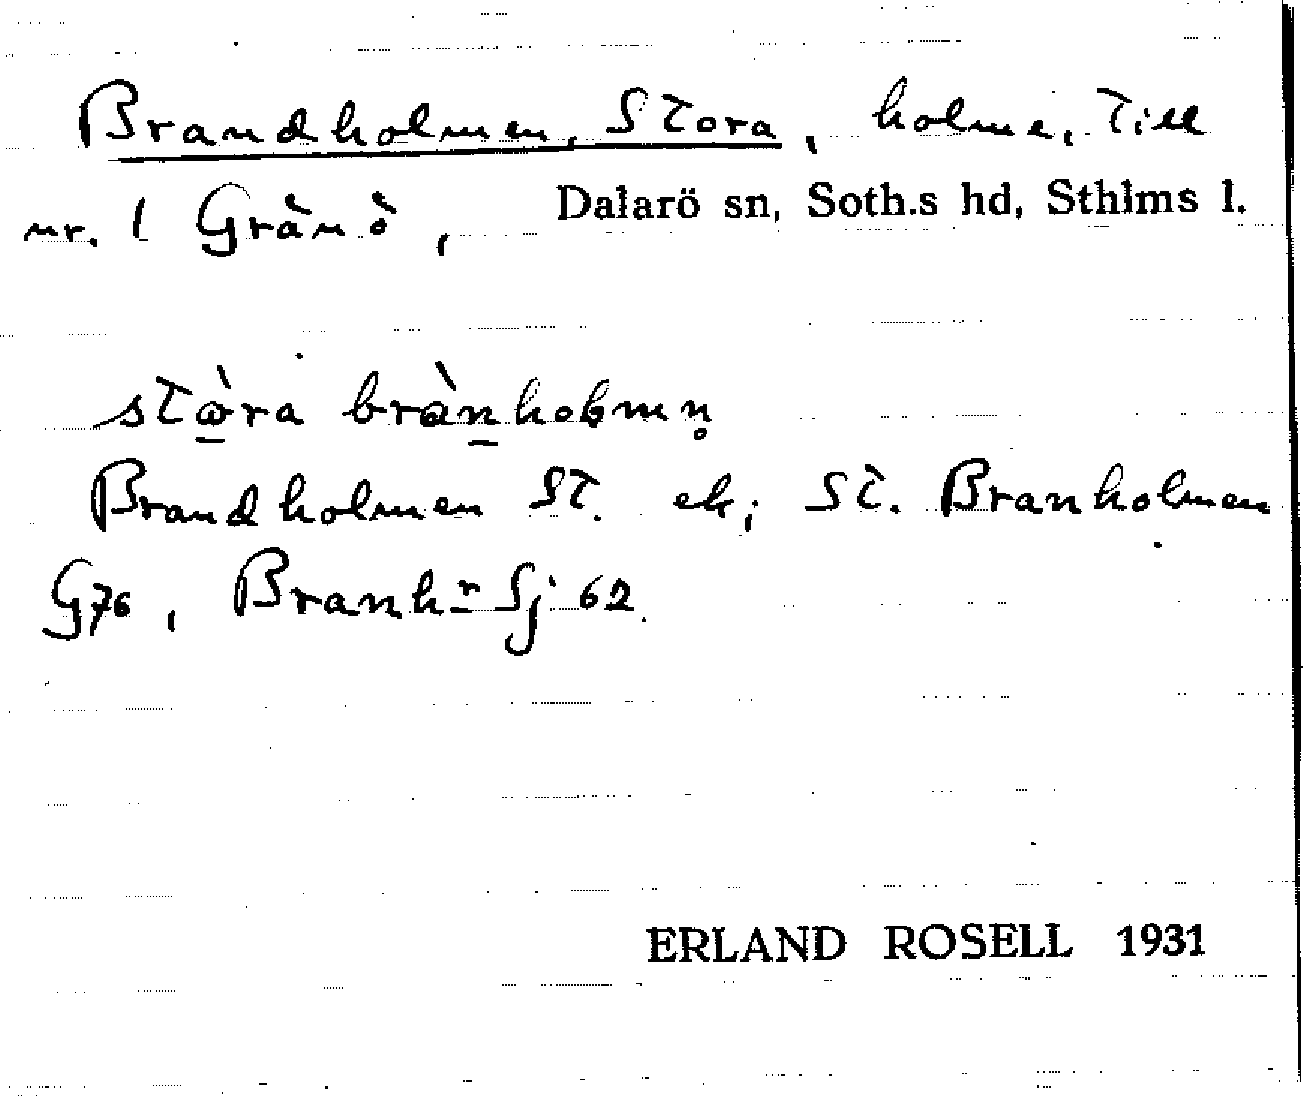 Brandholmen, Stora, holme, till
nr. 1 Gränö, Dalarö sn, Soth.s hd, Sthlms l.
stὼra brànholmn̥
Brandholmen St. ek; St. Branholmen
G76, Branh-r Sj 62.
ERLAND ROSELL 1931